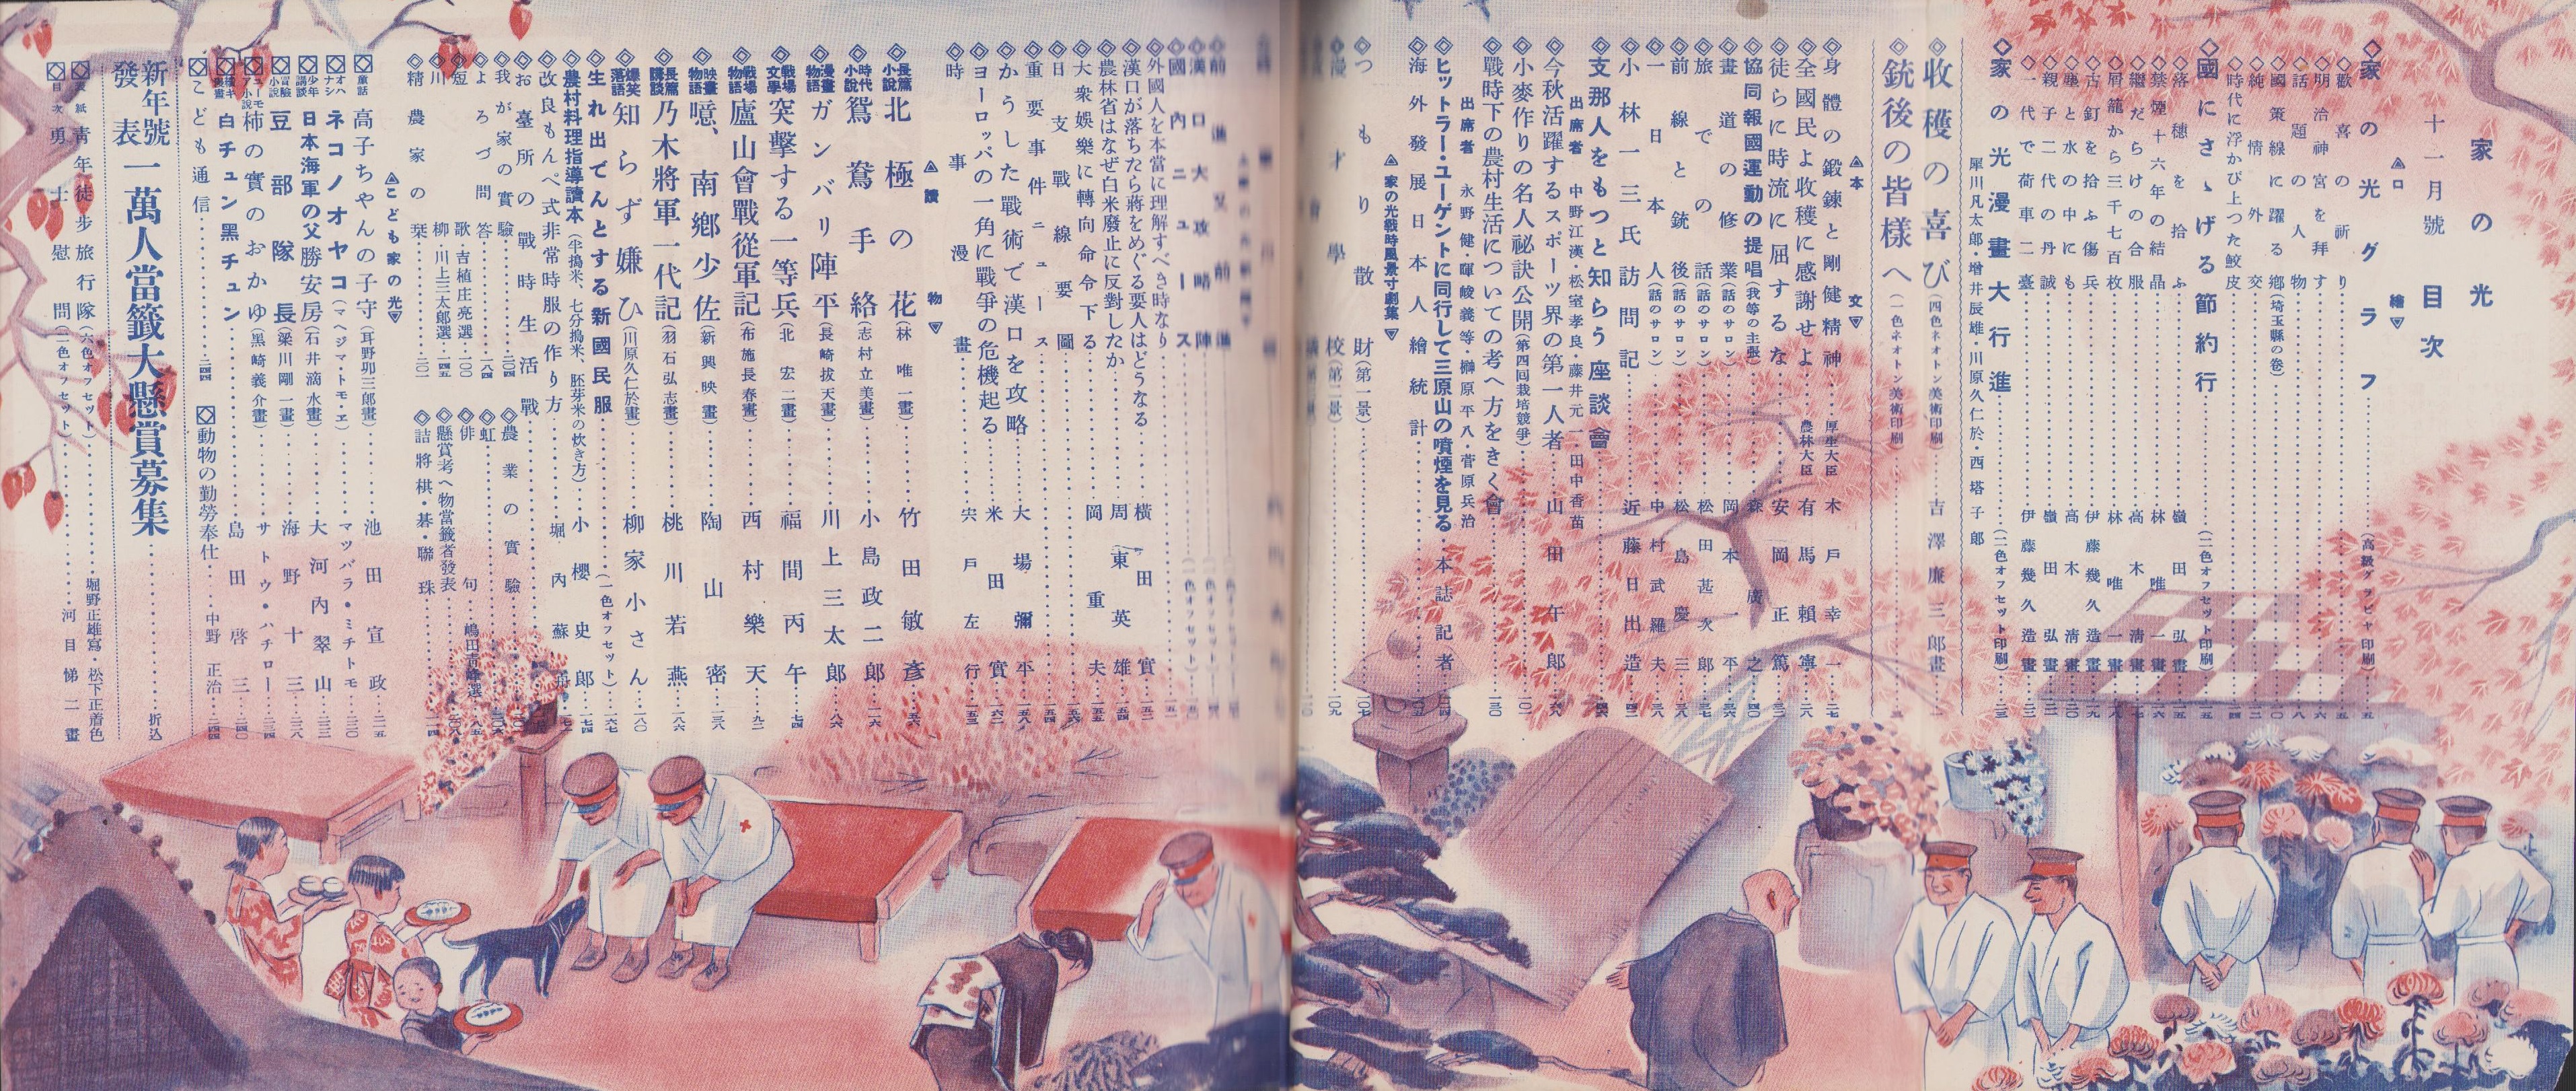 家の光
十一月號 目次
口繪
家の光グラフ（高級グラビヤ印刷）
歡喜の祈り
明治神宮を拜す
話題の人物
國策線に躍る鄕（埼玉縣の卷）
純情外交
時代に浮かび上つた鮫皮
國にさゝげる節約行（二色オフセット印刷）
落穗を拾ふ 嶺田弘畫
禁煙十六年の結晶 林唯一畫
繼だらけの合服 高木淸畫
屑籠から三千七百枚 林唯一畫
古釘を拾ふ傷兵 伊藤幾久造畫
塵と水の中にも 高木淸畫
親子二代の丹誠 嶺田弘畫
一代で荷車二臺 伊藤幾久造畫
家の光漫畫大行進（二色オフセット印刷）
犀川凡太郎・增井辰雄・川原久仁於・西塔子郎
收穫の喜び（四色ネオトン美術印刷） 吉澤廉三郎畫
銃後の皆樣へ（一色ネオトン美術印刷）
本文
身體の鍛鍊と剛健精神 厚生大臣 木戶幸一
全國民よ收穫に感謝せよ 農林大臣 有馬賴寧
徒らに時流に屈するな 安岡正篤
協同報國運動の提唱（我等の主張） 森廣之
畫道の修業（話のサロン） 岡本一平
旅での話（話のサロン） 松田甚次郎
前線と銃後（話のサロン） 松島慶三
一日本人（話のサロン） 中村武羅夫
小林一三氏訪問記 近藤日出造
支那人をもつと知らう座談會
出席者 中野江漢・松室孝良・藤井元一・田中香苗
今秋活躍するスポーツ界の第一人者 山田午郎
小麥作りの名人祕訣公開（第四囘栽培競爭）
戰時下の農村生活についての考へ方をきく會
出席者 永野健・暉峻義等・榊原平八・菅原兵治
ヒットラー・ユーゲントに同行して三原山の噴煙を見る 本誌記者
海外發展日本人繪統計
家の光戰時風景寸劇集
つもり散財（第一景）
漫才學校（第二景）
國內ニュース
外國人を本當に理解すべき時なり 橫田實
漢口が落ちたら蔣をめぐる要人はどうなる 周東英雄
農林省はなぜ白米廢止に反對したか 岡重夫
大衆娛樂に轉向命令下る
日支戰線要圖
重要事件ニュース
かうした戰術で漢口を攻略 大場彌平
ヨーロッパの一角に戰爭の危機起る 米田實
時事漫畫 宍戶左行
讀物
長篇小說 北極の花（林唯一畫） 竹田敏彥
時代小說 鴛鴦手絡（志村立美畫） 小島政二郎
漫畫物語 ガンバリ陣平（長崎拔天畫） 川上三太郎
戰場文學 突擊する一等兵（北宏二畫） 福間丙午
戰場物語 廬山會戰從軍記（布施長春畫） 西村樂天
映畫物語 噫、南鄕少佐（新興映畫） 陶山密
長篇講談 乃木將軍一代記（羽石弘志畫） 桃川若燕
爆笑落語 知らず嫌ひ（川原久仁於畫） 柳家小さん
生れ出でんとする新國民服（一色オフセット）
農村料理指導讀本（半搗米、七分搗米、胚芽米の炊き方） 小櫻史郎
改良もんぺ式非常時服の作り方 堀內蘇
お臺所の戰時生活戰
我が家の實驗
よろづ問答
短歌・吉植庄亮選
川柳・川上三太郎選
精農家の栞
農業の實驗
虹
俳句 嶋田靑峰選
懸賞考へ物當籤者發表
詰將棋・碁・聯珠
こども家の光
童話 高子ちやんの子守（耳野卯三郎畫） 池田宣政
オハナシ ネコノオヤコ（マヘジマ・トモヱ） マツバラ・ミチトモ
少年講談 日本海軍の父勝安房（石井滴水畫） 大河內翠山
冒險小說 豆部隊長（梁川剛一畫） 海野十三
ユーモア小說 柿の實のおかゆ（黑崎義介畫） サトウ・ハチロー
白チュン黑チュン 島田啓三
こども通信
動物の勤勞奉仕 中野正治
新年號發表 一萬人當籤大懸賞募集 折込
表紙 靑年徒步旅行隊（六色オフセット） 堀野正雄寫・松下正着色
目次 勇士慰問（一色オフセット） 河目悌二畫